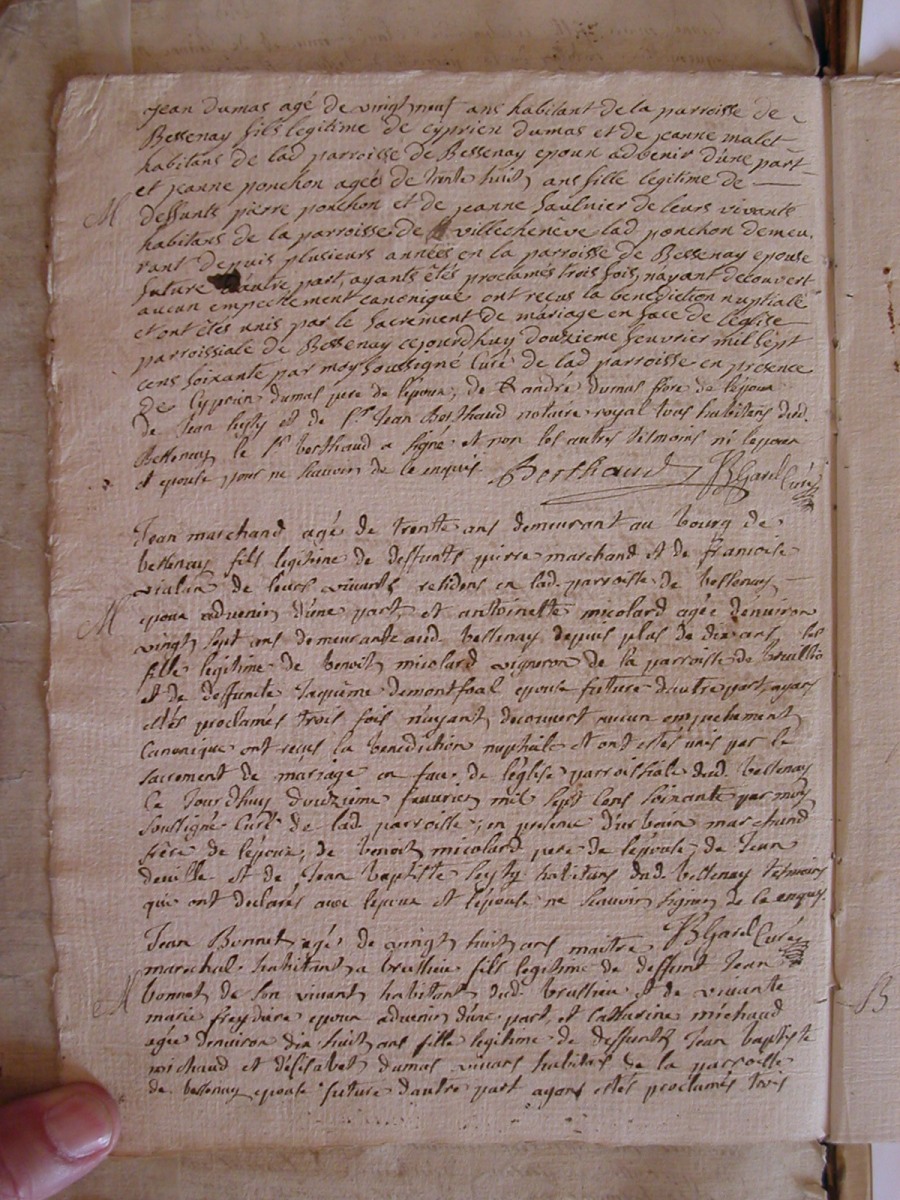 Jean dumas agé de vingt neuf ans habitant de la parroisse de
Bessenay fils legitime de cyprien dumas et de jeanne malet
habitans de lad parroisse de Bessenay epoux advenir d'une part
et jeanne ponchon ageé de trente huit ans fille legitime de
M
deffunts pierre ponchon et de jeanne saulnier de leurs vivants
habitans de la parroisse de villechenève lad ponchon demeu.
rant depuis plusieurs années en la parroisse de Bessenay epouse
future d'autre part, ayants étés proclamés trois fois, nayant decouvert
aucun empechement canonique ont recus la benediction nuptiale
et ont étés unis par le sacrement de mariage en face de l'eglise
parroissiale de Bessenay cejourdhuy douzieme fevrier mil sept
cens soixante par moy soussigné Curé de lad parroisse en presence
de Cyprien dumas pere de l'epoux, de andré dumas frere de l'epoux
de Jean et de Sr Jean Berthaud notaire royal tous habitans dud.
Bessenay le Sr berthaud a signé et non les autres temoins ni lepoux
et epouse pour ne sauoir de ce enquis Berthaud JBGarel Curé
Jean marchand agé de trente ans demeurant au bourg de
bessenay fils legitime de deffunts pierre marchand et de francoise
vialan de leurs vivants residens en lad parroisse de bessenay
M
epoux advenir d'une part, et antoinette micolard agée denviron
vingt sept ans demeurante aud. bessenay depuis plus de dix ans,
fille legitime de benoit micolard vigneron de la parroisse de
et de deffuncte Jaquème demontfoal epouse future dautre part, ayans
étés proclamés trois fois n'ayant decouvert aucun empechement
Canonique ont recus la benediction nuptiale et ont estés unis par le
sacrement de mariage en face de l'église parroissiale dud. bessenay
Ce Jourdhuy douzieme feuvrier mil sept Cens soixante par moy
soussigné Curé de lad parroisse, en presence d'urbain marchand
frère de l'epoux, de benoit micolard pere de l'epouse, de Jean
deville et de Jean baptiste habitans dud. bessenay temoins
qui ont declarés avec lepoux et l'epouse ne scauoir signer de ce enquis.
JBGarel Curé
Jean Bonnet agé de vingt huit ans maitre
marechal habitant a brussieu fils legitime de deffunt Jean
M
bonnet de son vivant habitant dud. brussieu et de vivante
marie freydiere epoux advenir d'une part, et Catherine michaud
agée denviron dix huit ans fille legitime de deffunts Jean baptiste
michaud et d'élisabet dumas vivans habitans de la parroisse
de bessenay epouse future dautre part ayans estés proclamés trois
B